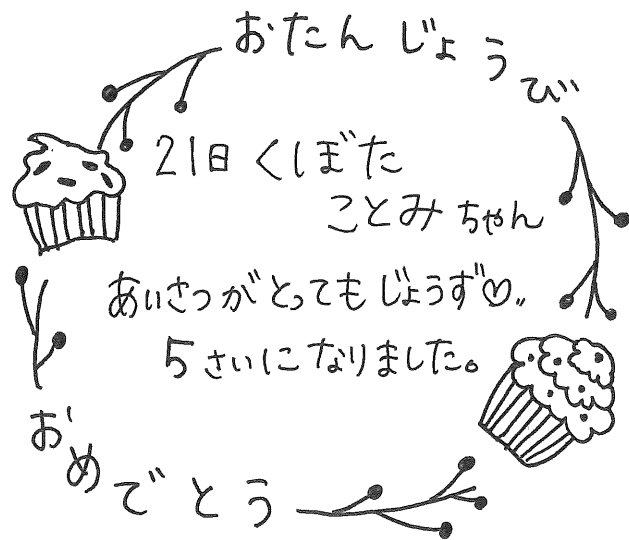 おたんじょうび
21日 くぼた
ことみ ちゃん
あいさつが とっても じょうず♡
5さいに なりました。
おめでとう